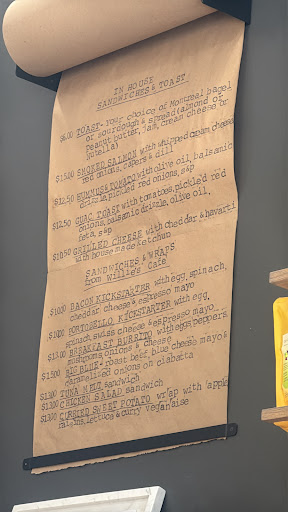 IN HOUSE
SANDWICHES & TOAST
$6.00 TOAST- Your choice of Montreal bagel
or sourdough & spread (almond or
peanut butter, jam, cream cheese or
nutella)
SMOKED SALMON with whipped cream cheese,
red onions, capers & dill
$12.50 HUMMUS & TOMATO with olive oil, balsamic
drizzle, pickled red onions, s&p
$12.50 GUAC TOAST with tomatoes, pickled red
onions, balsamic drizzle, olive oil,
feta, s&p
$10.50 GRILLED CHEESE with cheddar & havarti
with house made ketchup
SANDWICHES & WRAPS
from Willie's Cafe
$10.00 BACON KICKSTARTER with egg, spinach,
cheddar cheese & espresso mayo
PORTOBELLO KICKSTARTER with egg,
spinach, swiss cheese & espresso mayo
BREAKFAST BURRITO with eggs, peppers,
mushrooms, onions & cheese
BIG BLUE- roast beef, blue cheese mayo &
caramelized onions on ciabatta
TUNA MELT sandwich
CHICKEN SALAD sandwich
CURRIED SWEET POTATO wrap with apple,
raisins, lettuce & curry veganaise